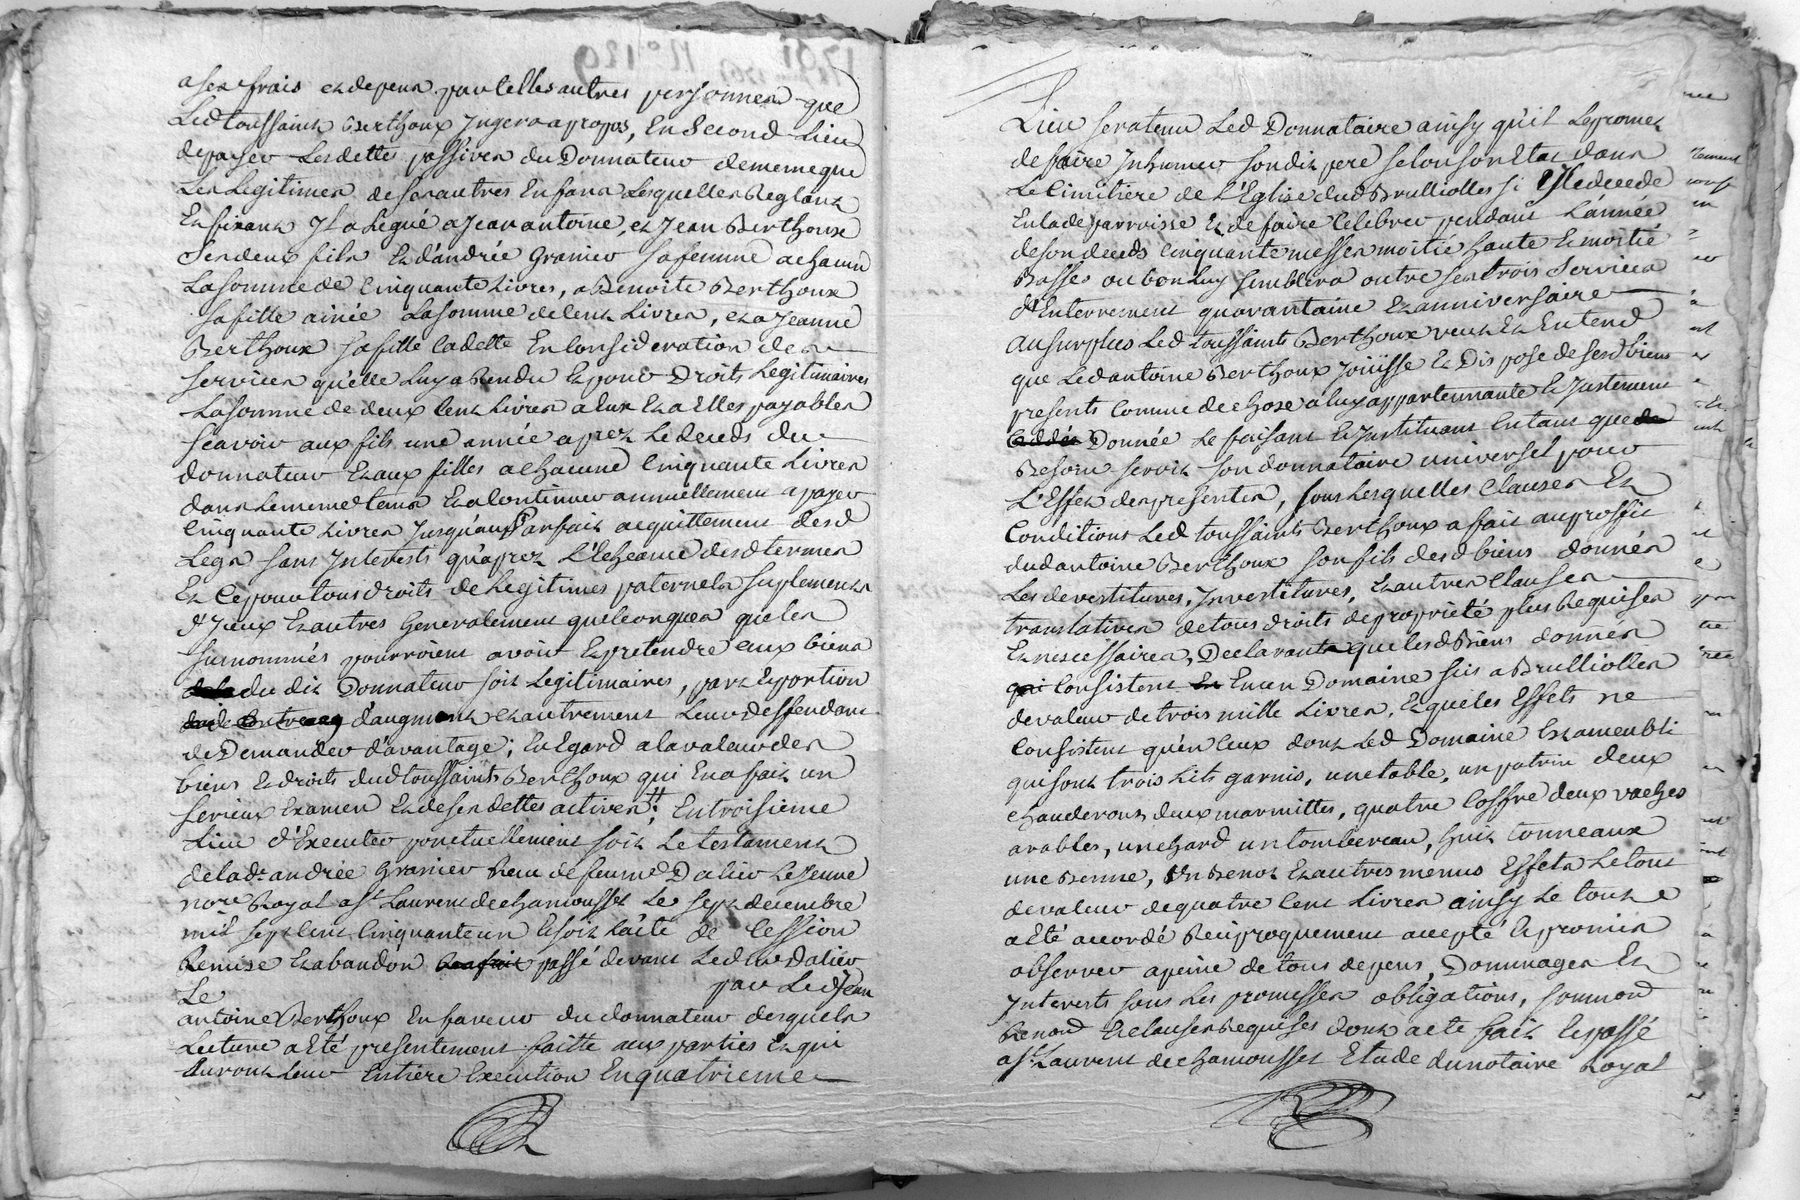 a ses frais et depens par telles autres personnes que
Led toussaint Berthoux Jugera apropos, En Second Lieu
depayer Les dettes passives du Donnateur dememe que
Les Legitimes de ses autres Enfans Lesquelles Reglant
Et fixant Jl a Legué a Jean antoine, et Jean Berthoux
Ses deux fils Et d'andrée Granier sa femme a chacun
La somme de Cinquante Livres, a Benoite Berthoux
sa fille ainée La somme de Cent Livres, et a Jeanne
Berthoux sa fille Cadette En Consideration des
services qu'elle Luy a Rendu Et pour Droits Legitimaires
La somme de deux Cent Livres a Eux Et a Elles payables
scavoir aux fils une année aprez Le deceds du
donnateur Et aux filles a chacune Cinquante Livres
dans Le meme tems Et a Continuer annuellement a payer
Cinquante Livres Jusqu'au Parfait acquittement desd
Legs sans Interests qu'aprez L'Echeance desd termes
Et Ce pour tous droits de Legitimes paternels suplements
d'Yceux Et autres Generalement quelconques que Les
surnommés pourroient avoir Et pretendre aux biens
du dit Donnateur soit Legitimaires, part Et portion
d'augment et autrement Leur deffendant
de Demander d'avantage; En Egard a la valeur des
biens Et droits dud toussaint Berthoux qui En a fait un
serieux Examen Et de ses dettes actives; En troisieme
Lieu d'Executer ponctuellement soit Le testament
de lad.e andrée Granier Recu de feu me Dalier Le Jeune
nore Royal a St Laurent de chamousset Le sept decembre
mil sept Cent Cinquante un Et soit L'acte de Cession
Remise Et abandon passé devant Led me Dalier
Le par Led Jean
antoine Berthoux En faveur du donnateur desquels
Lecture a Eté presentement faitte aux parties et qui
auront Leur Entiere Execution En quatrieme
N° 129
Lieu sera tenu Led Donnataire ainsy qu'il Le promet
de faire Inhumer son dit pere selon son Etat dans
Le Cimitière de L'Eglise dud Brulliolles si Jl decede
En lade parroisse Et de faire Celebrer pendant L'année
de son deceds Cinquante messes moitié haute Et moitié
Basses ou bon Luy semblera outre ses trois Services
d'Enterrement quarantaine Et anniversaire
au surplus Led toussaint Berthoux veut Et Entend
que Led antoine Berthoux Jouisse Et Dispose de sesd biens
presents Comme de chose a luy appartennante Et Justement
Donnée Le faisant Et Instituant En tant que
Besoin seroit son donnataire universel pour
L'Effet des presentes, sous Lesquelles Clauses Et
Conditions Led toussaint Berthoux a fait au proffit
dud antoine Berthoux son fils desd biens donnés
Les devestitures, Investitures, Et autres Clauses
translatives de tous droits de propriété plus Requises
Et nescessaires, Declarant que lesd Biens donnés
Consistent En un Domaine sis a Brulliolles
de valeur de trois mille Livres, Et que les Effets ne
Consistent qu'en Ceux dont Led Domaine Est ameubli
qui sont trois Lits garnis, une table, un patrin deux
chauderons deux marmittes, quatre Coffre deux vaches
arables, un chard un tombereau, huit tonneaux
une Benne, Un Benot Et autres menus Effets Le tout
de valeur de quatre Cent Livres ainsy Le tout
a Eté accordé Reciproquement accepté Et promis
observer a peine de tous depens, Dommages Et
Interests sous Les promesses obligations, soumond
Renond Et clauses Requises dont acte fait Et passé
a St Laurent de chamousset Etude du notaire Royal